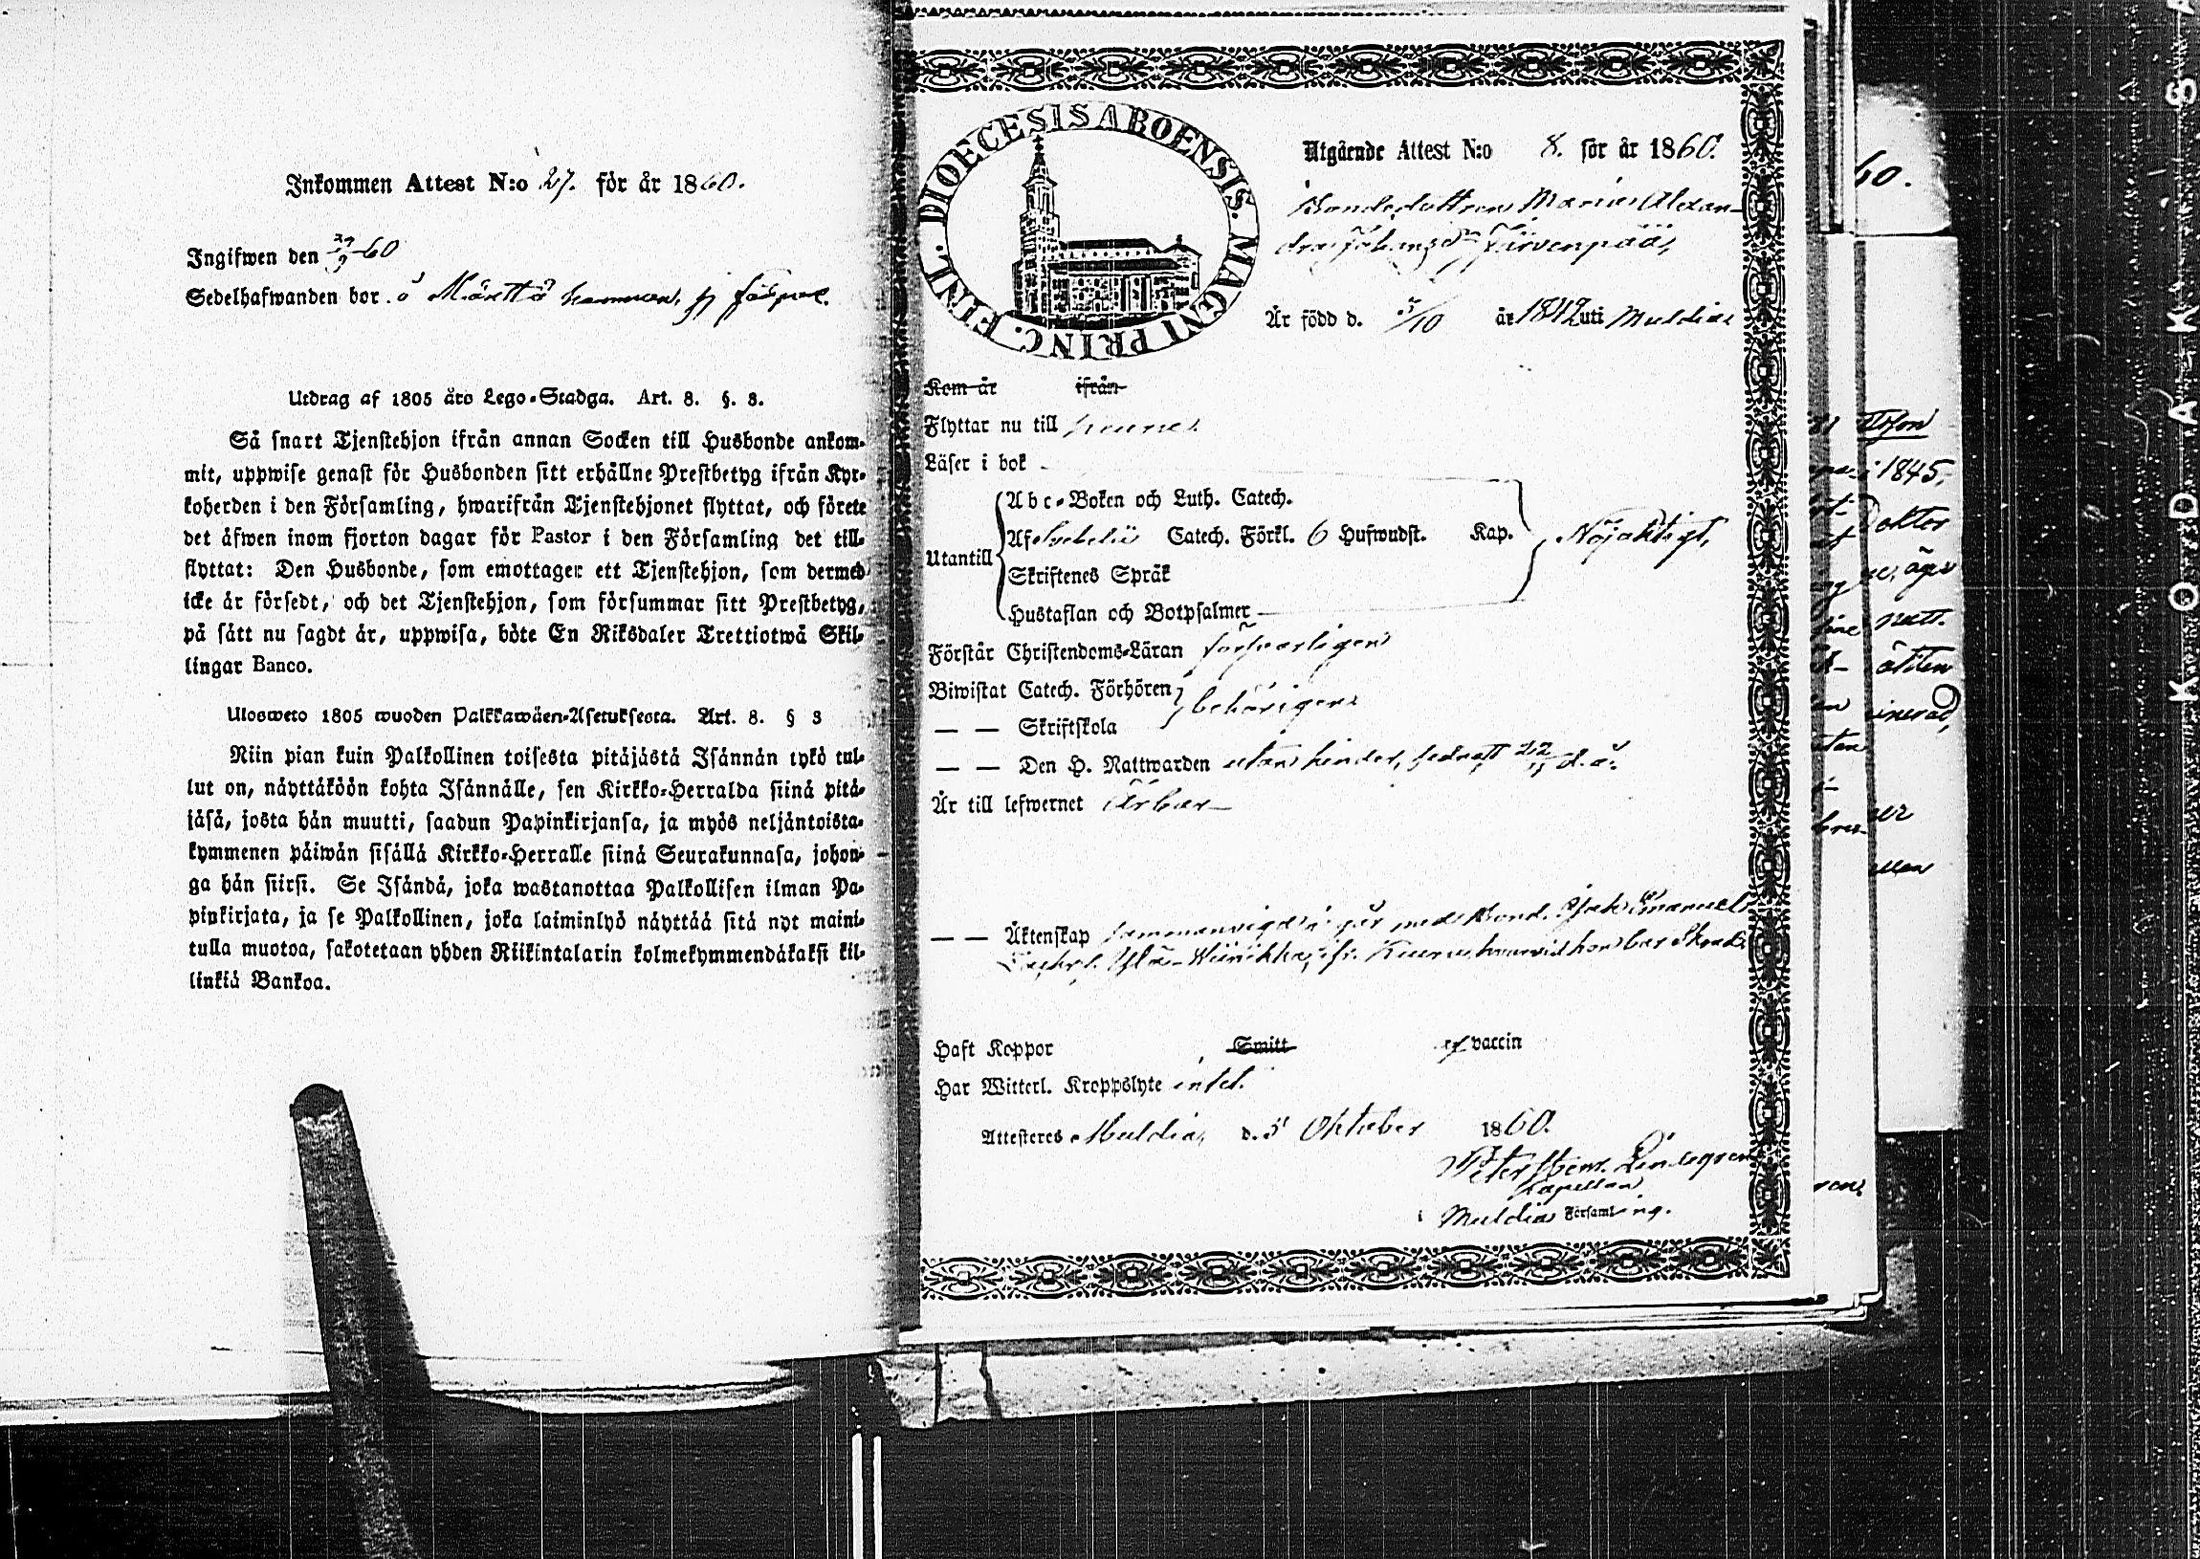 Inkommen Attest N:o 27. för år 1860.
Ingifwen den 29/9 60
Sedelhafwanden bor å Mäettä
Utdrag af 1805 års Lego-Stadga. Art. 8. §. 8.
Så snart Tjenstehjon ifrån annan Socken till Husbonde ankom-
mit, uppwise genast för Husbonden sitt erhållne Prestbetyg ifrån Kyr-
koherden i den Församling, hwarifrån Tjenstehjonet flyttat, och förete
det äfwen inom fjorton dagar för Pastor i den Församling det till-
flyttat: Den Husbonde, som emottager ett Tjenstehjon, som dermed
icke är försedt, och det Tjenstehjon, som försummar sitt Prestbetyg,
på sätt nu sagdt är, uppwisa, böte En Riksdaler Trettiotwå Skil-
lingar Banco.
Ulosweto 1805 wuoden Palkkawäen-Asetuksesta. Art. 8. § 8
Niin pian kuin Palkollinen toisesta pitäjästä Isännän tykö tul-
lut on, näyttäköön kohta Isännälle, sen Kirkko-Herralda siinä pitä-
jäsä, josta hän muutti, saadun Papinkirjansa, ja myös neljäntoista-
kymmenen päiwän sisällä Kirkko-Herralle siinä Seurakunnasa, johon-
ga hän siirsi. Se Isändä, joka wastanottaa Palkollisen ilman Pa-
pinkirjata, ja se Palkollinen, joka laiminlyö näyttää sitä nyt maini-
tulla muotoa, sakotetaan yhden Riikintalarin kolmekymmendäkaksi kil-
linkiä Bankoa.
DIOECESIS ABOENSIS. MAGNI PRINC. FINL.
Utgående Attest N:o 8. för år 1860.
Bondedottren Maria Alexan-
dra Johansdr Järvenpää,
Är född d. 5/10 år 1842 uti Muldia
Kom år ifrån
Flyttar nu till Keuru
Läser i bok
Abc-Boken och Luth. Catech.
Af Svebelii Catech. Förkl. 6 Hufwudst. Kap. Nöjaktigt,
Utantill
Skriftenes Språk
Hustaflan och Botpsalmer
Förstår Christendoms-Läran försvarligen
Biwistat Catech. Förhören behörigen
— — Skriftskola
— — Den H. Nattwarden utan hinder, sednast d. å.
Är till lefwernet Ärbar
— — Äktenskap med Bond. Emanuel
fr. Keuru, hvarvid hon bär
Haft Koppor Smitt af vaccin
Har Witterl. Kroppslyte intet.
Attesteres Muldia, d. 5 Oktober 1860.
Peter Lindegren
Kapellan
i Muldia Församling.
60.
i 1845,
KODAK